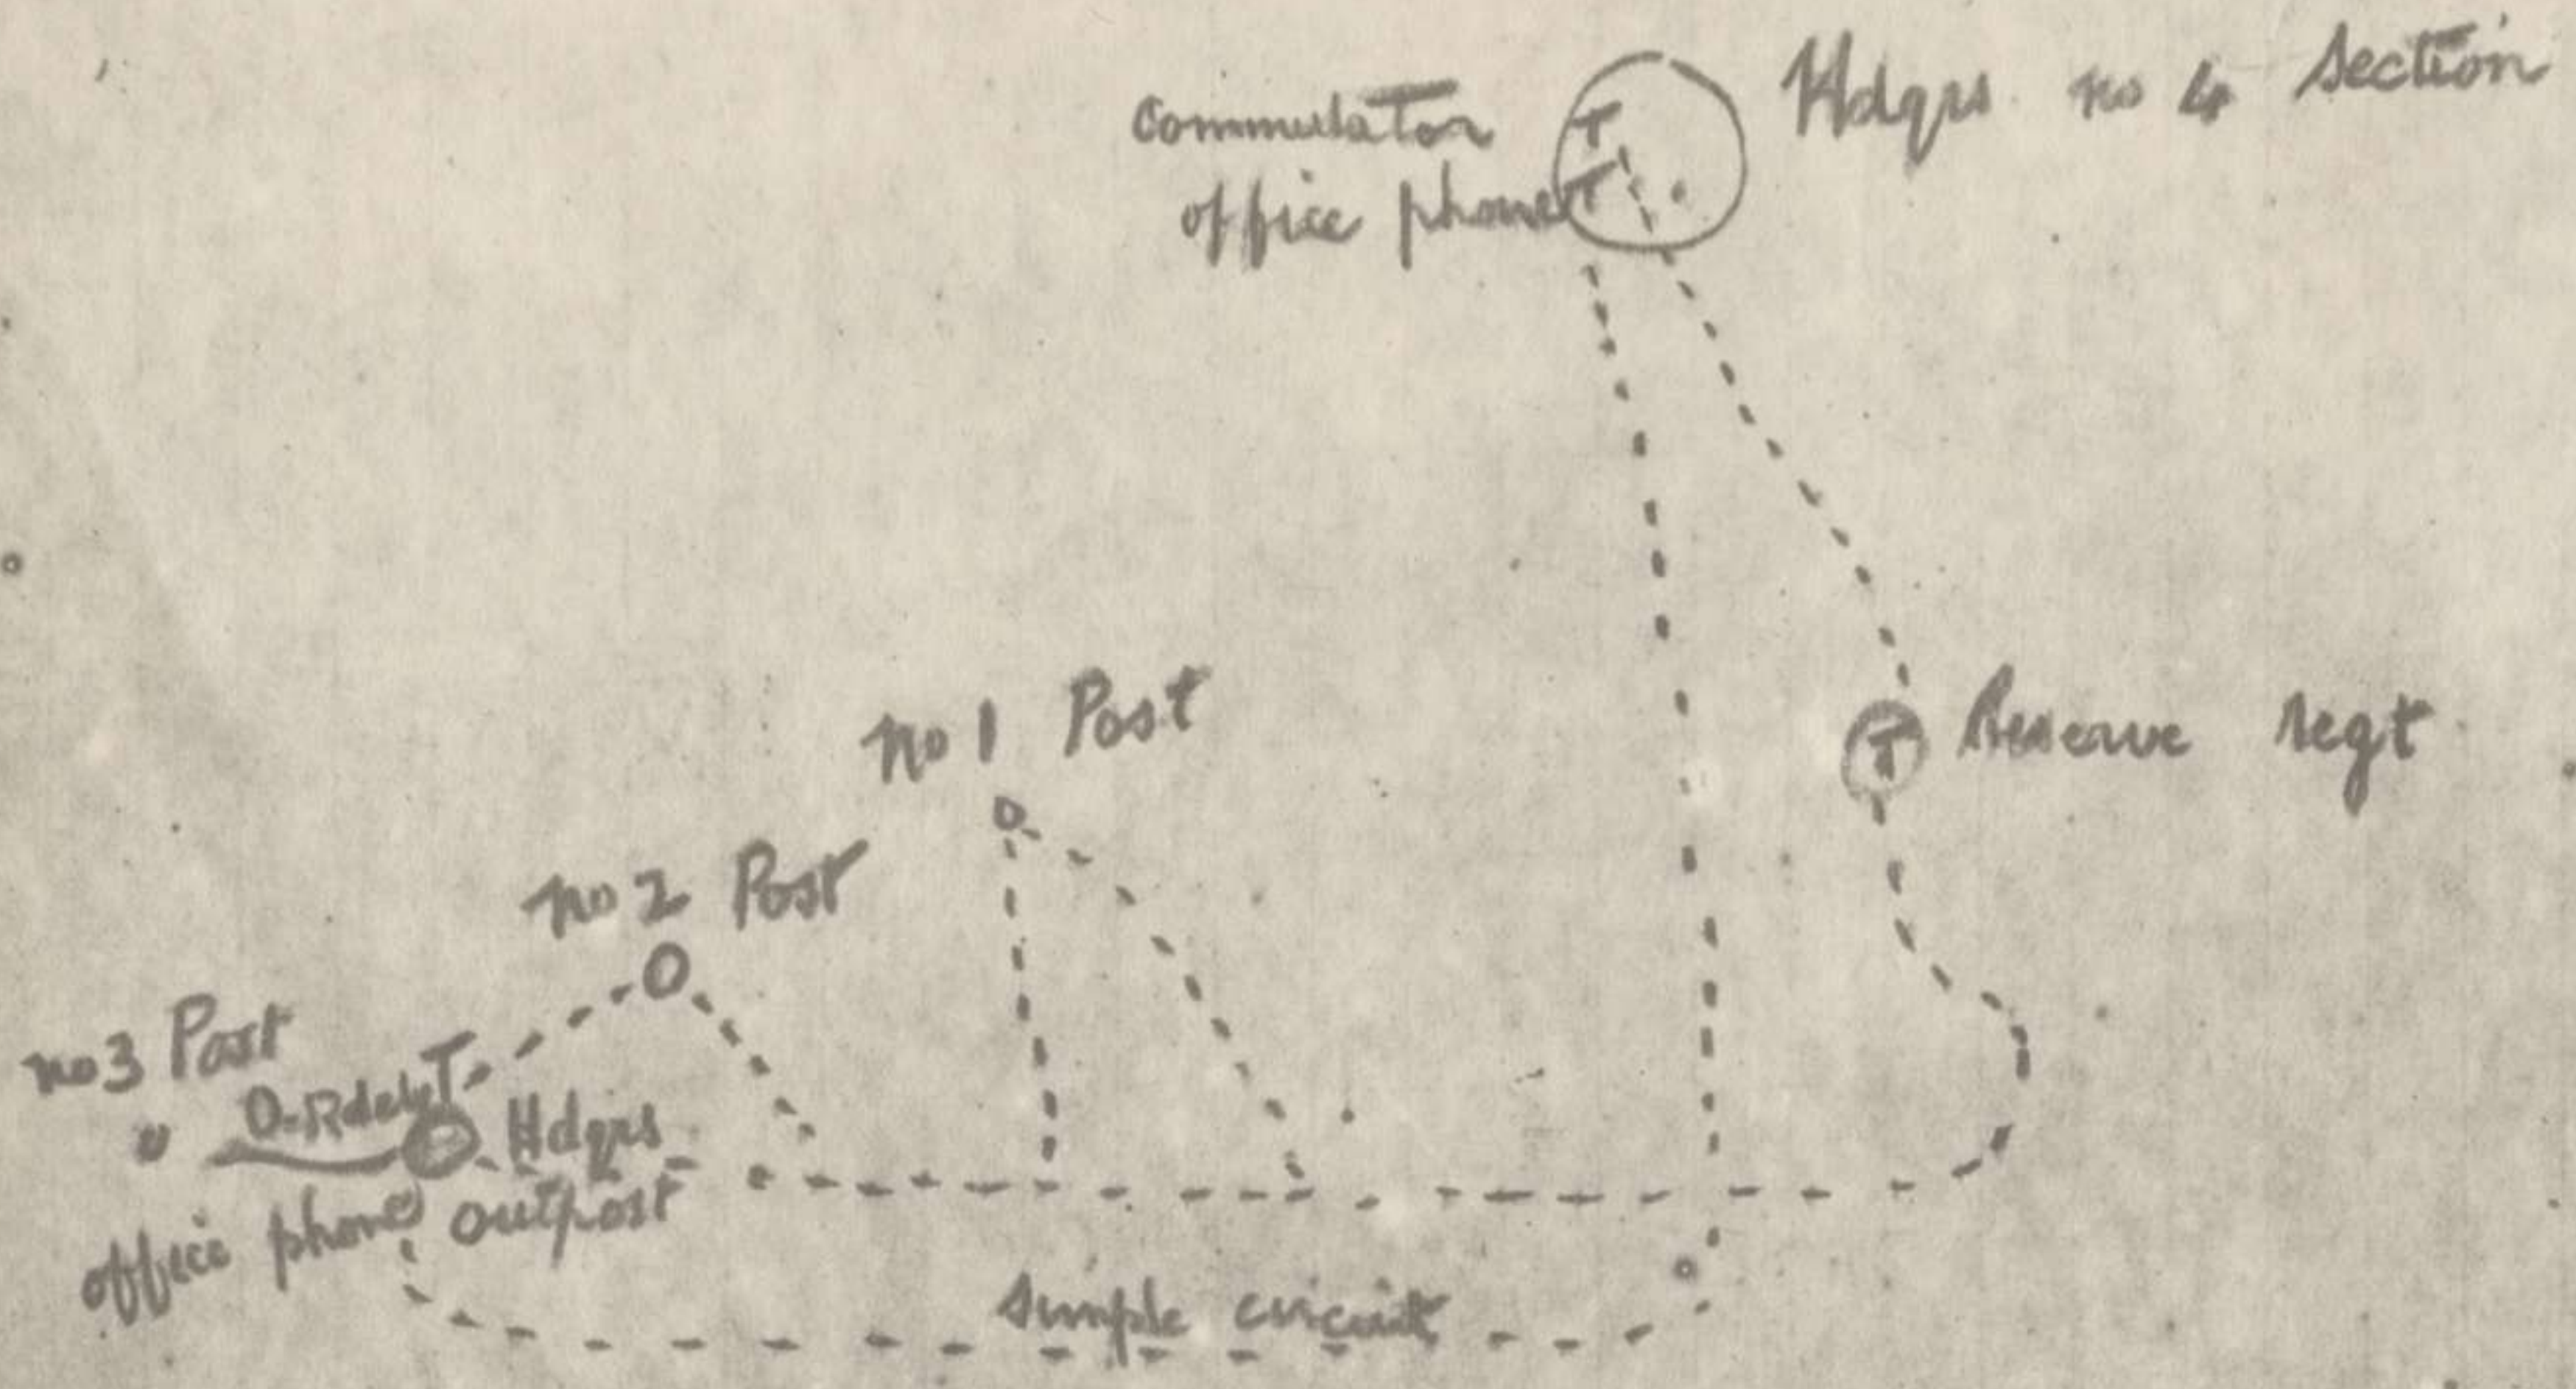 Commutator
office phone
T
T
Hdqrs no 4 Section
no 1 Post
T
Reserve regt
no 2 Post
no 3 Post
T
Hdqrs
outpost
office phone
simple circuit